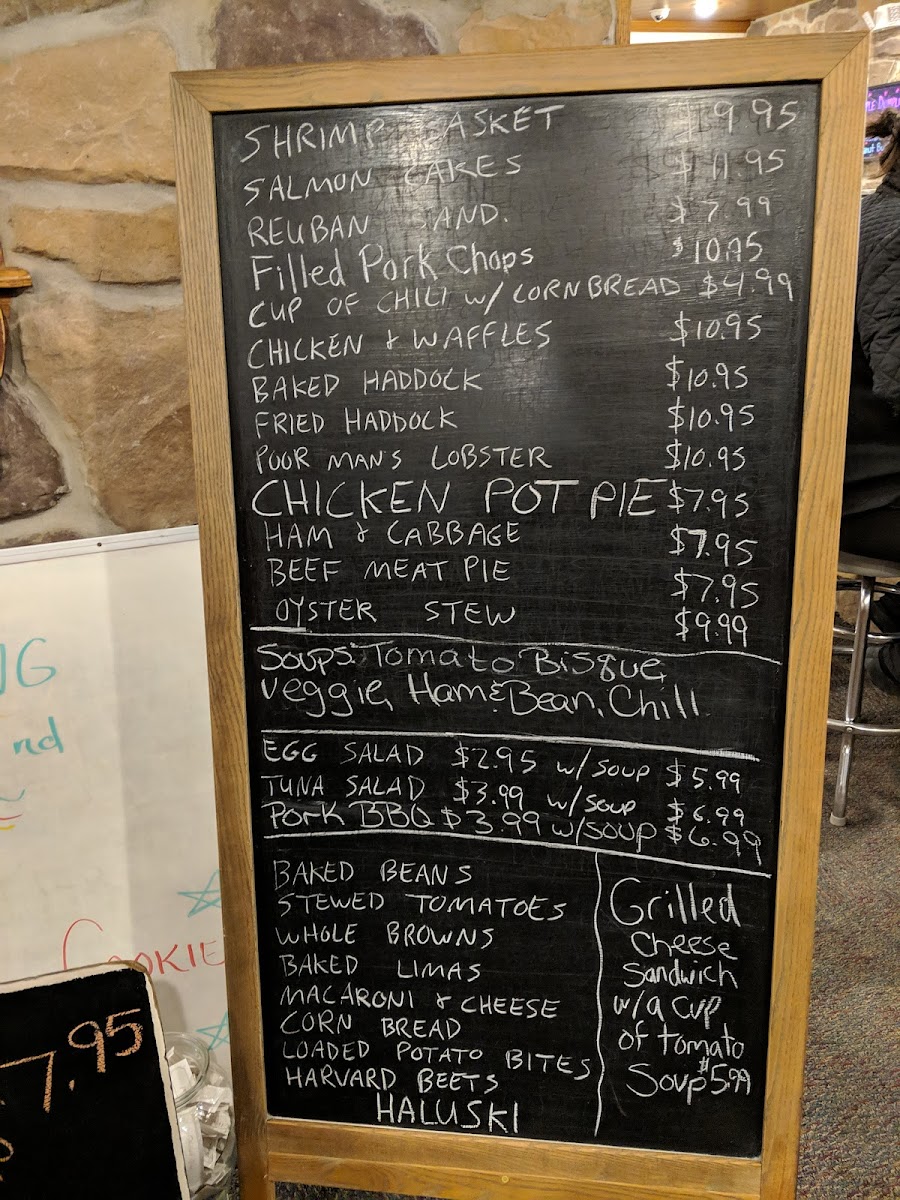 SHRIMP BASKET $9.95
SALMON CAKES $11.95
REUBAN SAND. $7.99
Filled Pork Chops $10.95
CUP OF CHILI w/ CORNBREAD $4.99
CHICKEN & WAFFLES $10.95
BAKED HADDOCK $10.95
FRIED HADDOCK $10.95
POOR MANS LOBSTER $10.95
CHICKEN POT PIE $7.95
HAM & CABBAGE $7.95
BEEF MEAT PIE $7.95
OYSTER STEW $9.99
Soups: Tomato Bisque,
Veggie, Ham & Bean, Chili
EGG SALAD $2.95 w/ SOUP $5.99
TUNA SALAD $3.99 w/ SOUP $6.99
Pork BBQ $3.99 w/ SOUP $6.99
BAKED BEANS
STEWED TOMATOES
WHOLE BROWNS
BAKED LIMAS
MACARONI & CHEESE
CORN BREAD
LOADED POTATO BITES
HARVARD BEETS
HALUSKI
Grilled
Cheese
Sandwich
w/a cup
of tomato
Soup $5.99
NG
nd
COOKIE
7.95